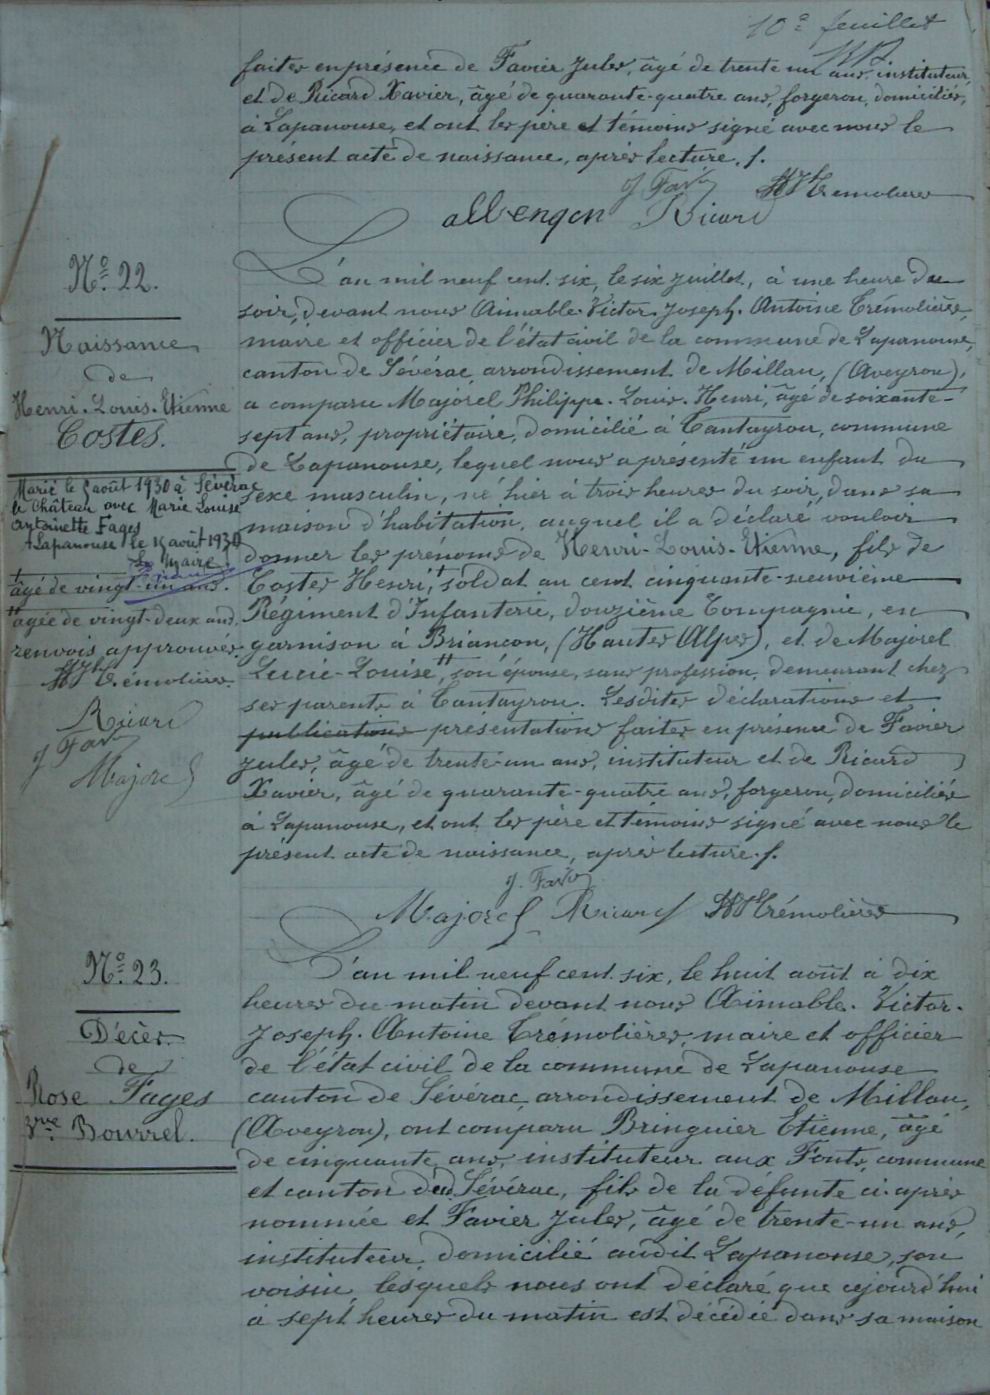 10e feuillet
faites en présence de Favier Jules, âgé de trente un ans, instituteur,
et de Ricard Xavier, âgé de quarante-quatre ans, forgeron, domiciliés,
à Lapanouse, et ont les père et témoins signé avec nous le
présent acte de naissance, après lecture./.
J. Fav
Trémolières
allengon Ricard
No. 22.
Naissance
de
Henri-Louis-Etienne
Costes.
Marié le 5 août 1930 à Sévérac
le Château avec Marie Louise
Antoinette Fages
A Lapanouse le 15 août 1930
Le Maire
+ âgé de vingt-cinq ans.
++ âgée de vingt-deux ans.
renvois approuvés.
Trémolières
Ricard
J Fav
Majorel
L'an mil neuf cent six, le six juillet, à une heure du
soir, devant nous Aimable-Victor-Joseph-Antoine Trémolières,
maire et officier de l'état civil de la commune de Lapanouse,
canton de Sévérac, arrondissement de Millau, (Aveyron),
a comparu Majorel Philippe-Louis-Henri, âgé de soixante-
sept ans, propriétaire, domicilié à Tantayrou, commune
de Lapanouse, lequel nous a présenté un enfant du
sexe masculin, né hier à trois heures du soir, dans sa
maison d'habitation, auquel il a déclaré vouloir
donner les prénoms de Henri-Louis-Etienne, fils de
Costes Henri,+ soldat au cent cinquante-neuvième
Régiment d'Infanterie, douzième Compagnie, en
garnison à Briançon, (Hautes Alpes), et de Majorel
Lucie-Louise++, son épouse, sans profession, demeurant chez
ses parents à Tantayrou. Lesdites déclarations et
publications présentation faites en présence de Favier
Jules, âgé de trente-un ans, instituteur et de Ricard
Xavier, âgé de quarante-quatre ans, forgeron, domiciliés
à Lapanouse, et ont les père et témoins signé avec nous le
présent acte de naissance, après lecture./.
J. Fav
Majorel Ricard Trémolières
No. 23.
Décès
de
Rose Fages
Bourrel.
L'an mil neuf cent six, le huit août à dix
heures du matin devant nous Aimable-Victor-
Joseph-Antoine Trémolières, maire et officier
de l'état civil de la commune de Lapanouse
canton de Sévérac, arrondissement de Millau,
(Aveyron), ont comparu Bringuier Etienne, âgé
de cinquante ans, instituteur aux Fonts, commune
et canton de Sévérac, fils de la défunte ci-après
nommée et Favier Jules, âgé de trente-un ans,
instituteur, domicilié audit Lapanouse, son
voisin lesquels nous ont déclaré que cejourd'hui
à sept heures du matin est décédée dans sa maison